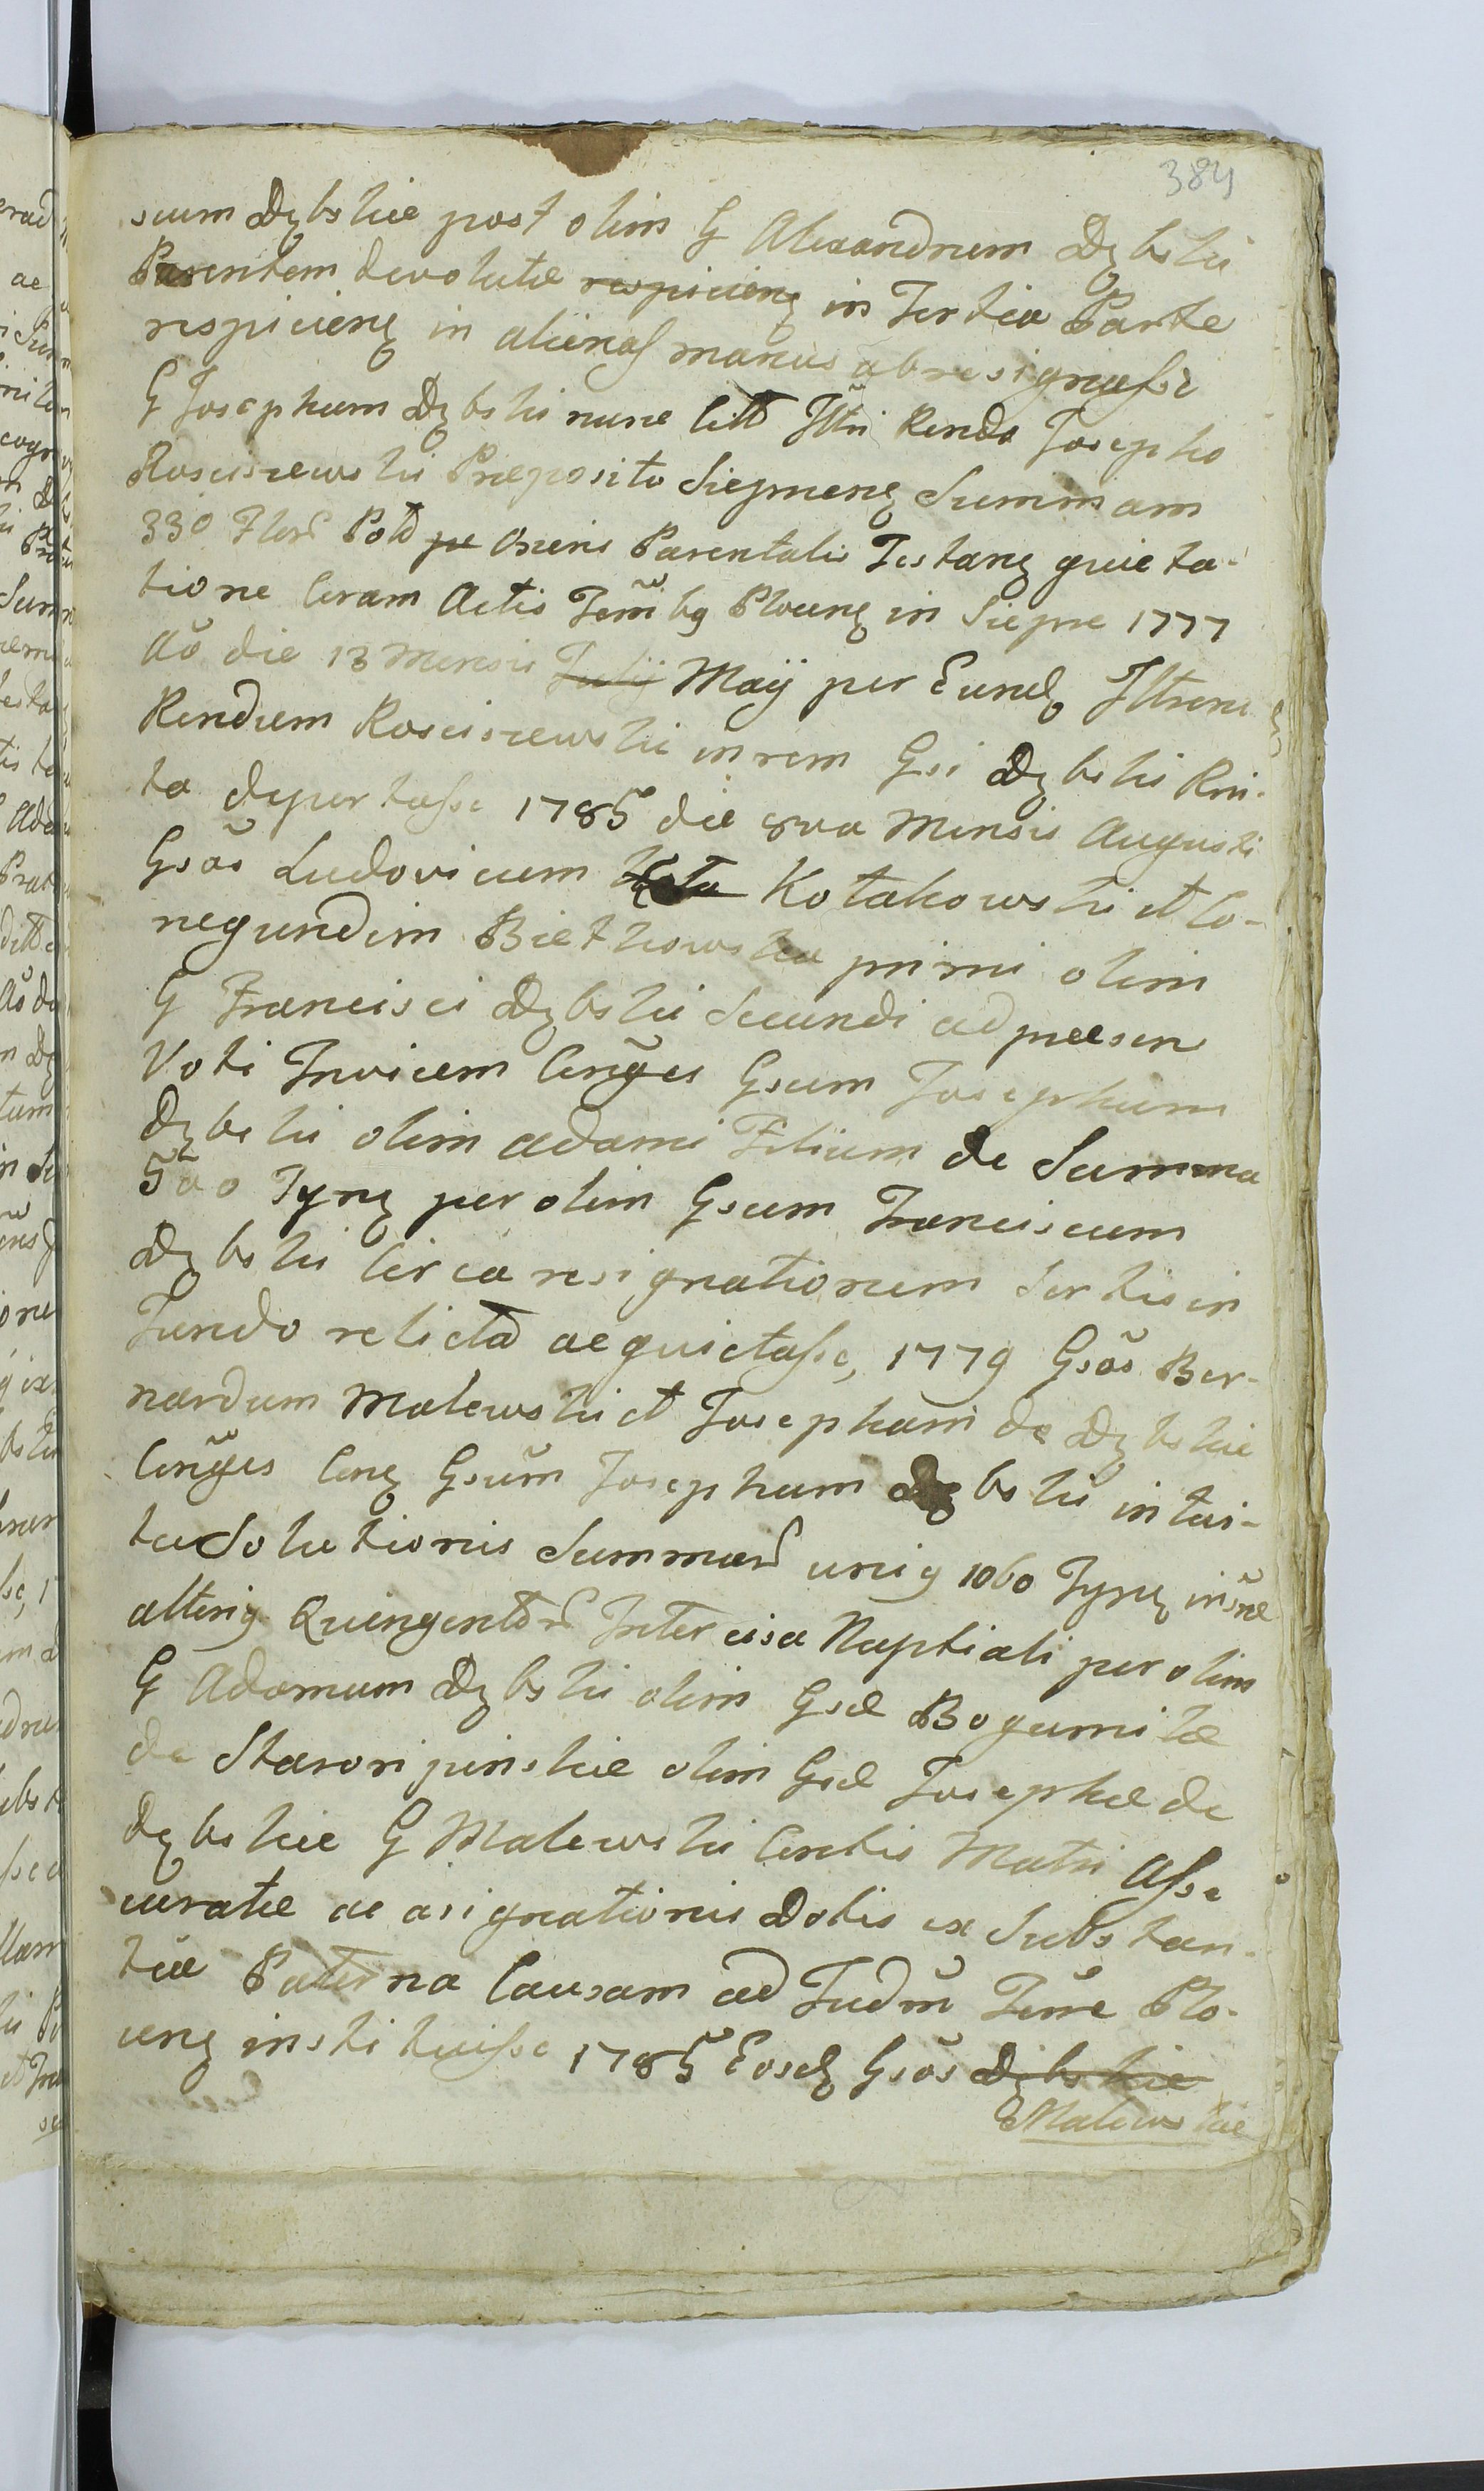 384
suum Dębskie post olim G Alexandrum Dębski
Parentem devolutæ respicienę in Tertia Parte
respicienę in alienas manus abresignasse
G Josephum Dębski nunc Illtri Rendo Josepho
Rosciszewski Præposito Siepmenę Summam
330 Flor Pol pe oneris Parentalis Testanę quieta-
tione Coram Actis Temibg Plocenę in Siepre 1777
Aõ die 13 Mensis Julij Maij per Eundę Illtrem
Rendum Rosciszewski in rem Gsi Dębski Rni-
ta deportasse 1785 die 8va Mensis Augusti
Gsõs Ludovicum Kota Kotakowski et Co-
negundim Bietkowska primi olim
G Francisci Dębski Secundi ad præsen
Voti Invicem Conges Gsum Josephum
Dębski olim Adami Filium de Summa
500 Tynę per olim Gsum Franciscum
Dębski Circa resignationem Sortis in
Fundo relicta ac quietasse, 1779 Gsõs Ber-
nardum Malewski et Josepham de Dębskie
Conges Conę Gsũm Josephum Dębski intui-
tu Solutionis Summar unig 1060 Tynę
alterig Quingentor Intercisa Nuptiali per olim
G Adamum Dębski olim Gsæ Bogumilæ
de Staroripinskie olim Gsæ Josephæ de
Dębskie G Malewski Contis Matri Asse
curatæ ac asignationis Dotis ex Substan-
tia Paterna Causam ad Judm Terre Plo-
cenę instituisse 1785 Eosdę Gsõs Dębskie
Malewskie